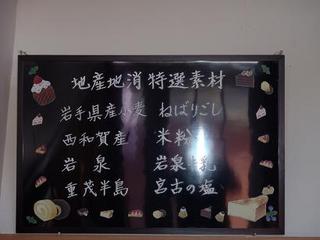 地産地消 特選素材
岩手県産小麦 ねばりごし
西和賀産 米粉
岩泉 岩泉牛乳
重茂半島 宮古の塩